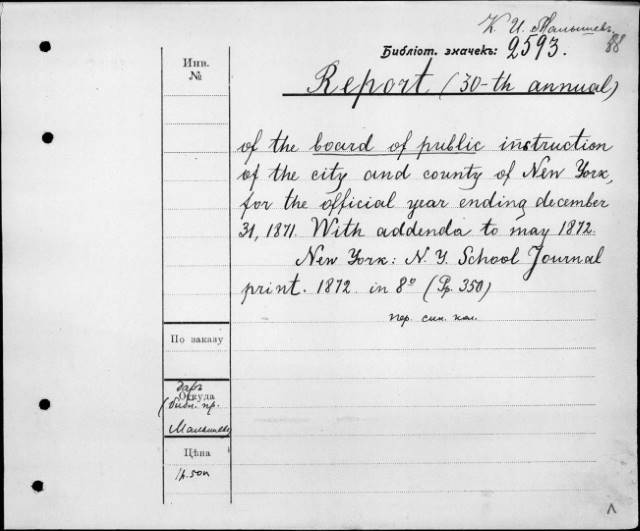 К. И. Малышевъ.
88
Библіот. значекъ: 2593.
Инв.
№
Report (30-th annual)
of the board of public instruction
of the city and county of New York,
for the official year ending december
31, 1871. With addenda to may 1872.
New York: N. Y. School Journal
print. 1872 in 8° (Pp. 350)
пер. син. кол.
По заказу
даръ
Откуда
(библ. пр.
Малышева
Цѣна
1р. 50к